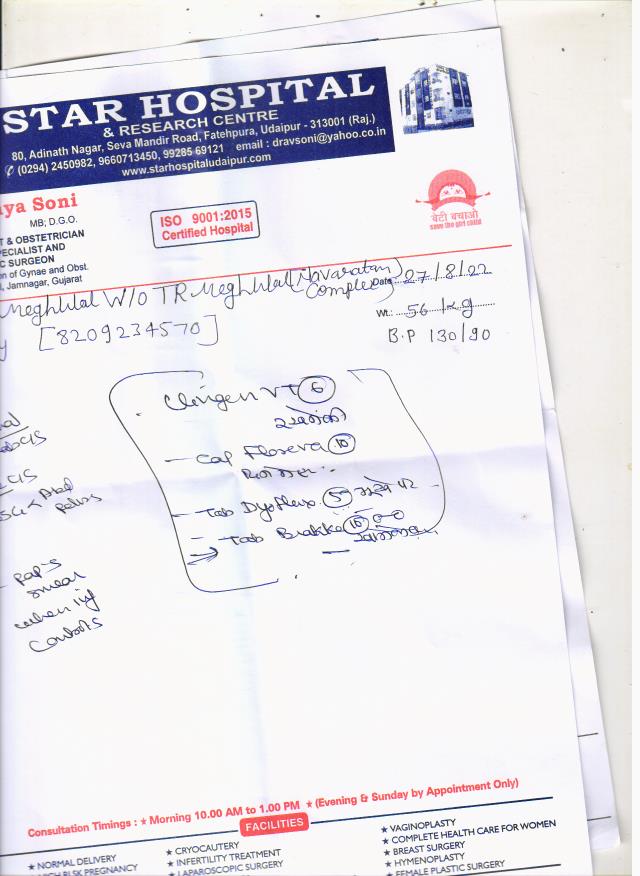 STAR HOSPITAL
& RESEARCH CENTRE
80, Adinath Nagar, Seva Mandir Road, Fatehpura, Udaipur - 313001 (Raj.)
(0294) 2450982, 9660713450, 99285 69121 email : dravsoni@yahoo.co.in
www.starhospitaludaipur.com
ya Soni
MB; D.G.O.
T & OBSTETRICIAN
PECIALIST AND
C SURGEON
on of Gynae and Obst.
l, Jamnagar, Gujarat
ISO 9001:2015
Certified Hospital
बेटी बचाओ
save the girl child
Meghlal W/O TR Meghlal (Navaratan Complex) Date 27/8/22
[8209234570]
Wt.: 56 kg
B.P 130/90
Clingen VT 6
- Cap Floseva 10
- Tab Dysflex 5
- Tab Brakke 10
Pap's
smear
when inf
Controls
Consultation Timings : ★ Morning 10.00 AM to 1.00 PM ★ (Evening & Sunday by Appointment Only)
FACILITIES
★ NORMAL DELIVERY
HIGH RISK PREGNANCY
★ CRYOCAUTERY
★ INFERTILITY TREATMENT
★ LAPAROSCOPIC SURGERY
★ VAGINOPLASTY
★ COMPLETE HEALTH CARE FOR WOMEN
★ BREAST SURGERY
★ HYMENOPLASTY
★ FEMALE PLASTIC SURGERY